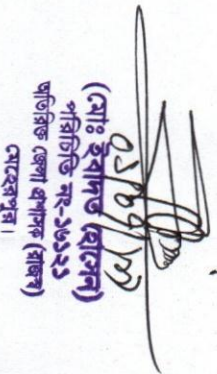 (মোঃ ইবাদত হোসেন)
পরিচিতি নং-১৬১২১
অতিরিক্ত জেলা প্রশাসক (রাজস্ব)
মেহেরপুর।